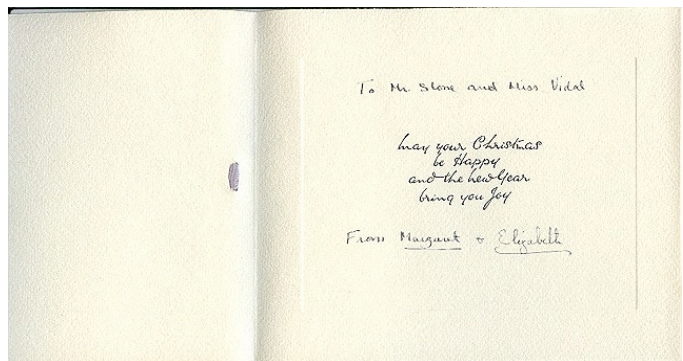 To Mr. Slone and Miss Vidal
May your Christmas
be Happy
and the New Year
bring you Joy
From Margaret & Elizabeth